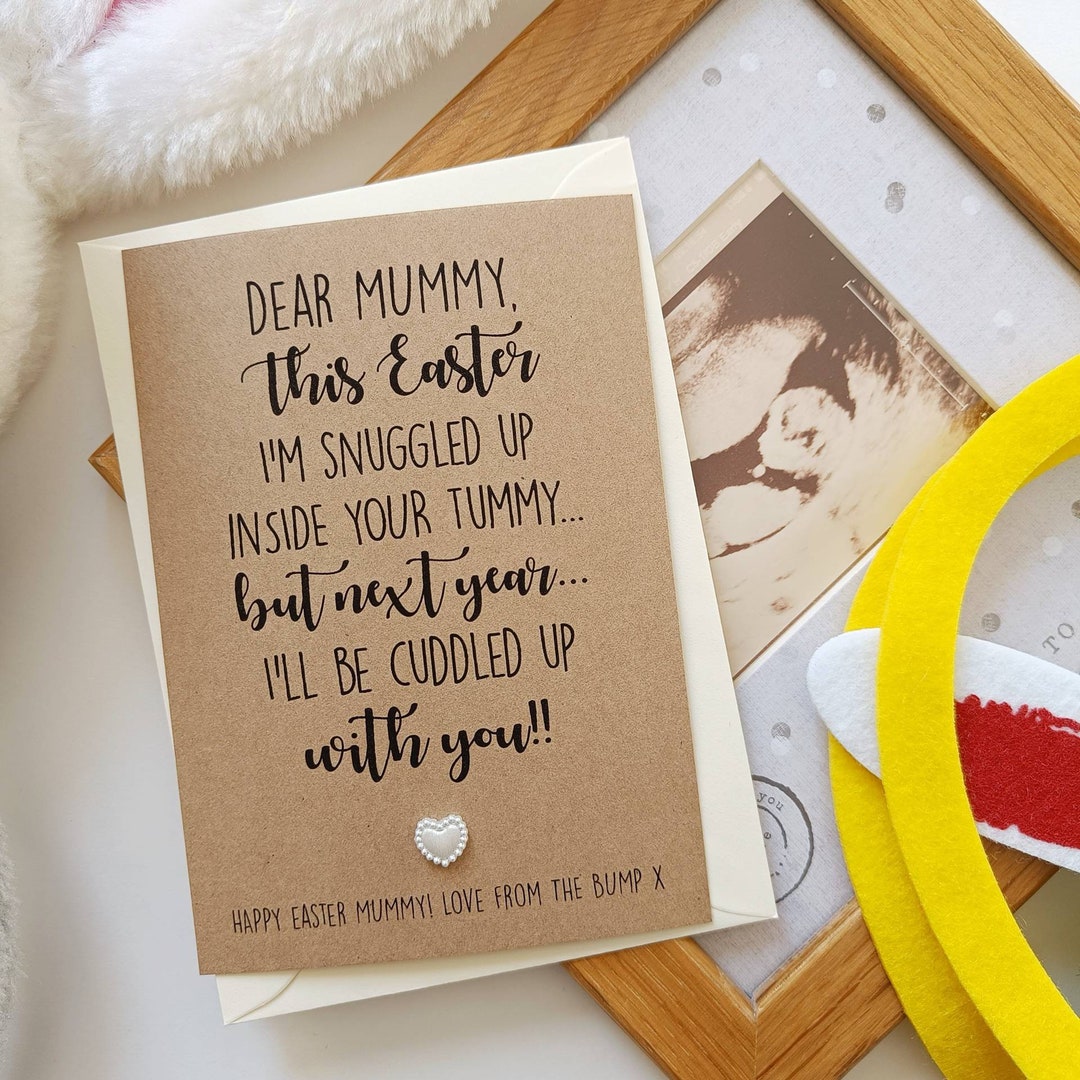 DEAR MUMMY,
this Easter
I'M SNUGGLED UP
INSIDE YOUR TUMMY...
but next year...
I'LL BE CUDDLED UP
with you!!
HAPPY EASTER MUMMY! LOVE FROM THE BUMP X
TO
you